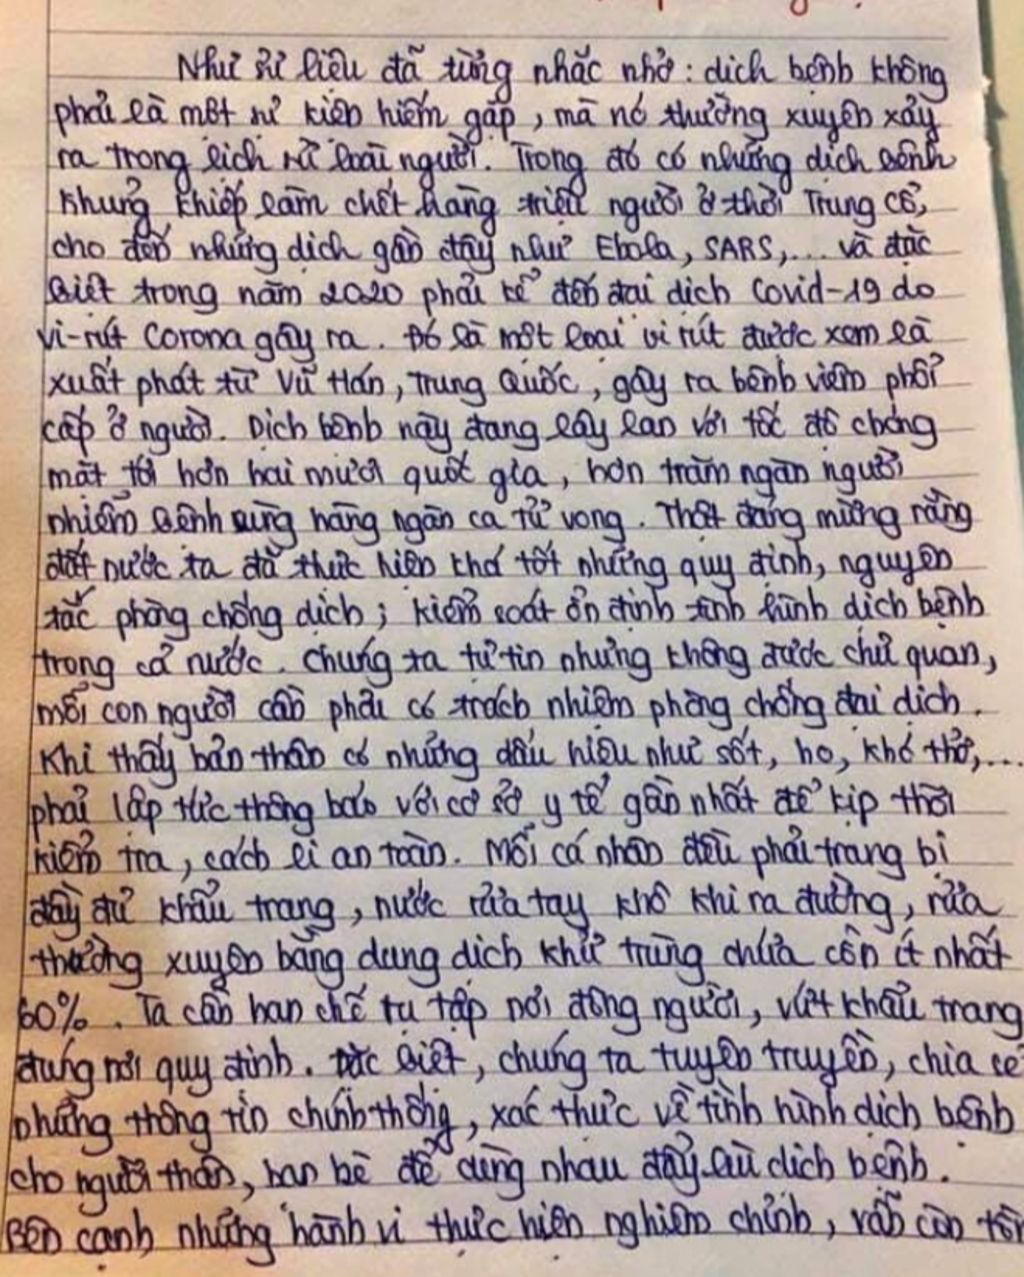 Như sử liệu đã từng nhắc nhở: dịch bệnh không
phải là một sự kiện hiếm gặp, mà nó thường xuyên xảy
ra trong lịch sử loài người. Trong đó có những dịch bệnh
khủng khiếp làm chết hàng triệu người ở thời Trung cổ,
cho đến những dịch gần đây như Ebola, SARS,... và đặc
biệt trong năm 2020 phải kể đến đại dịch Covid-19 do
vi-rút Corona gây ra. Đó là một loại vi rút được xem là
xuất phát từ Vũ Hán, Trung Quốc, gây ra bệnh viêm phổi
cấp ở người. Dịch bệnh này đang lây lan với tốc độ chóng
mặt tới hơn hai mươi quốc gia, hơn trăm ngàn người
nhiễm bệnh cùng hàng ngàn ca tử vong. Thật đáng mừng rằng
đất nước ta đã thực hiện khá tốt những quy định, nguyên
tắc phòng chống dịch; kiểm soát ổn định tình hình dịch bệnh
trong cả nước. Chúng ta tự tin nhưng không được chủ quan,
mỗi con người cần phải có trách nhiệm phòng chống đại dịch.
Khi thấy bản thân có những dấu hiệu như sốt, ho, khó thở,...
phải lập tức thông báo với cơ sở y tế gần nhất để kịp thời
kiểm tra, cách li an toàn. Mỗi cá nhân đều phải trang bị
đầy đủ khẩu trang, nước rửa tay khô khi ra đường, rửa
thường xuyên bằng dung dịch khử trùng chứa cồn ít nhất
60%. Ta cần hạn chế tụ tập nơi đông người, vứt khẩu trang
đúng nơi quy định. Đặc biệt, chúng ta tuyên truyền, chia sẻ
những thông tin chính thống, xác thực về tình hình dịch bệnh
cho người thân, bạn bè để cùng nhau đẩy lùi dịch bệnh.
Bên cạnh những hành vi thực hiện nghiêm chỉnh, vẫn còn tồn